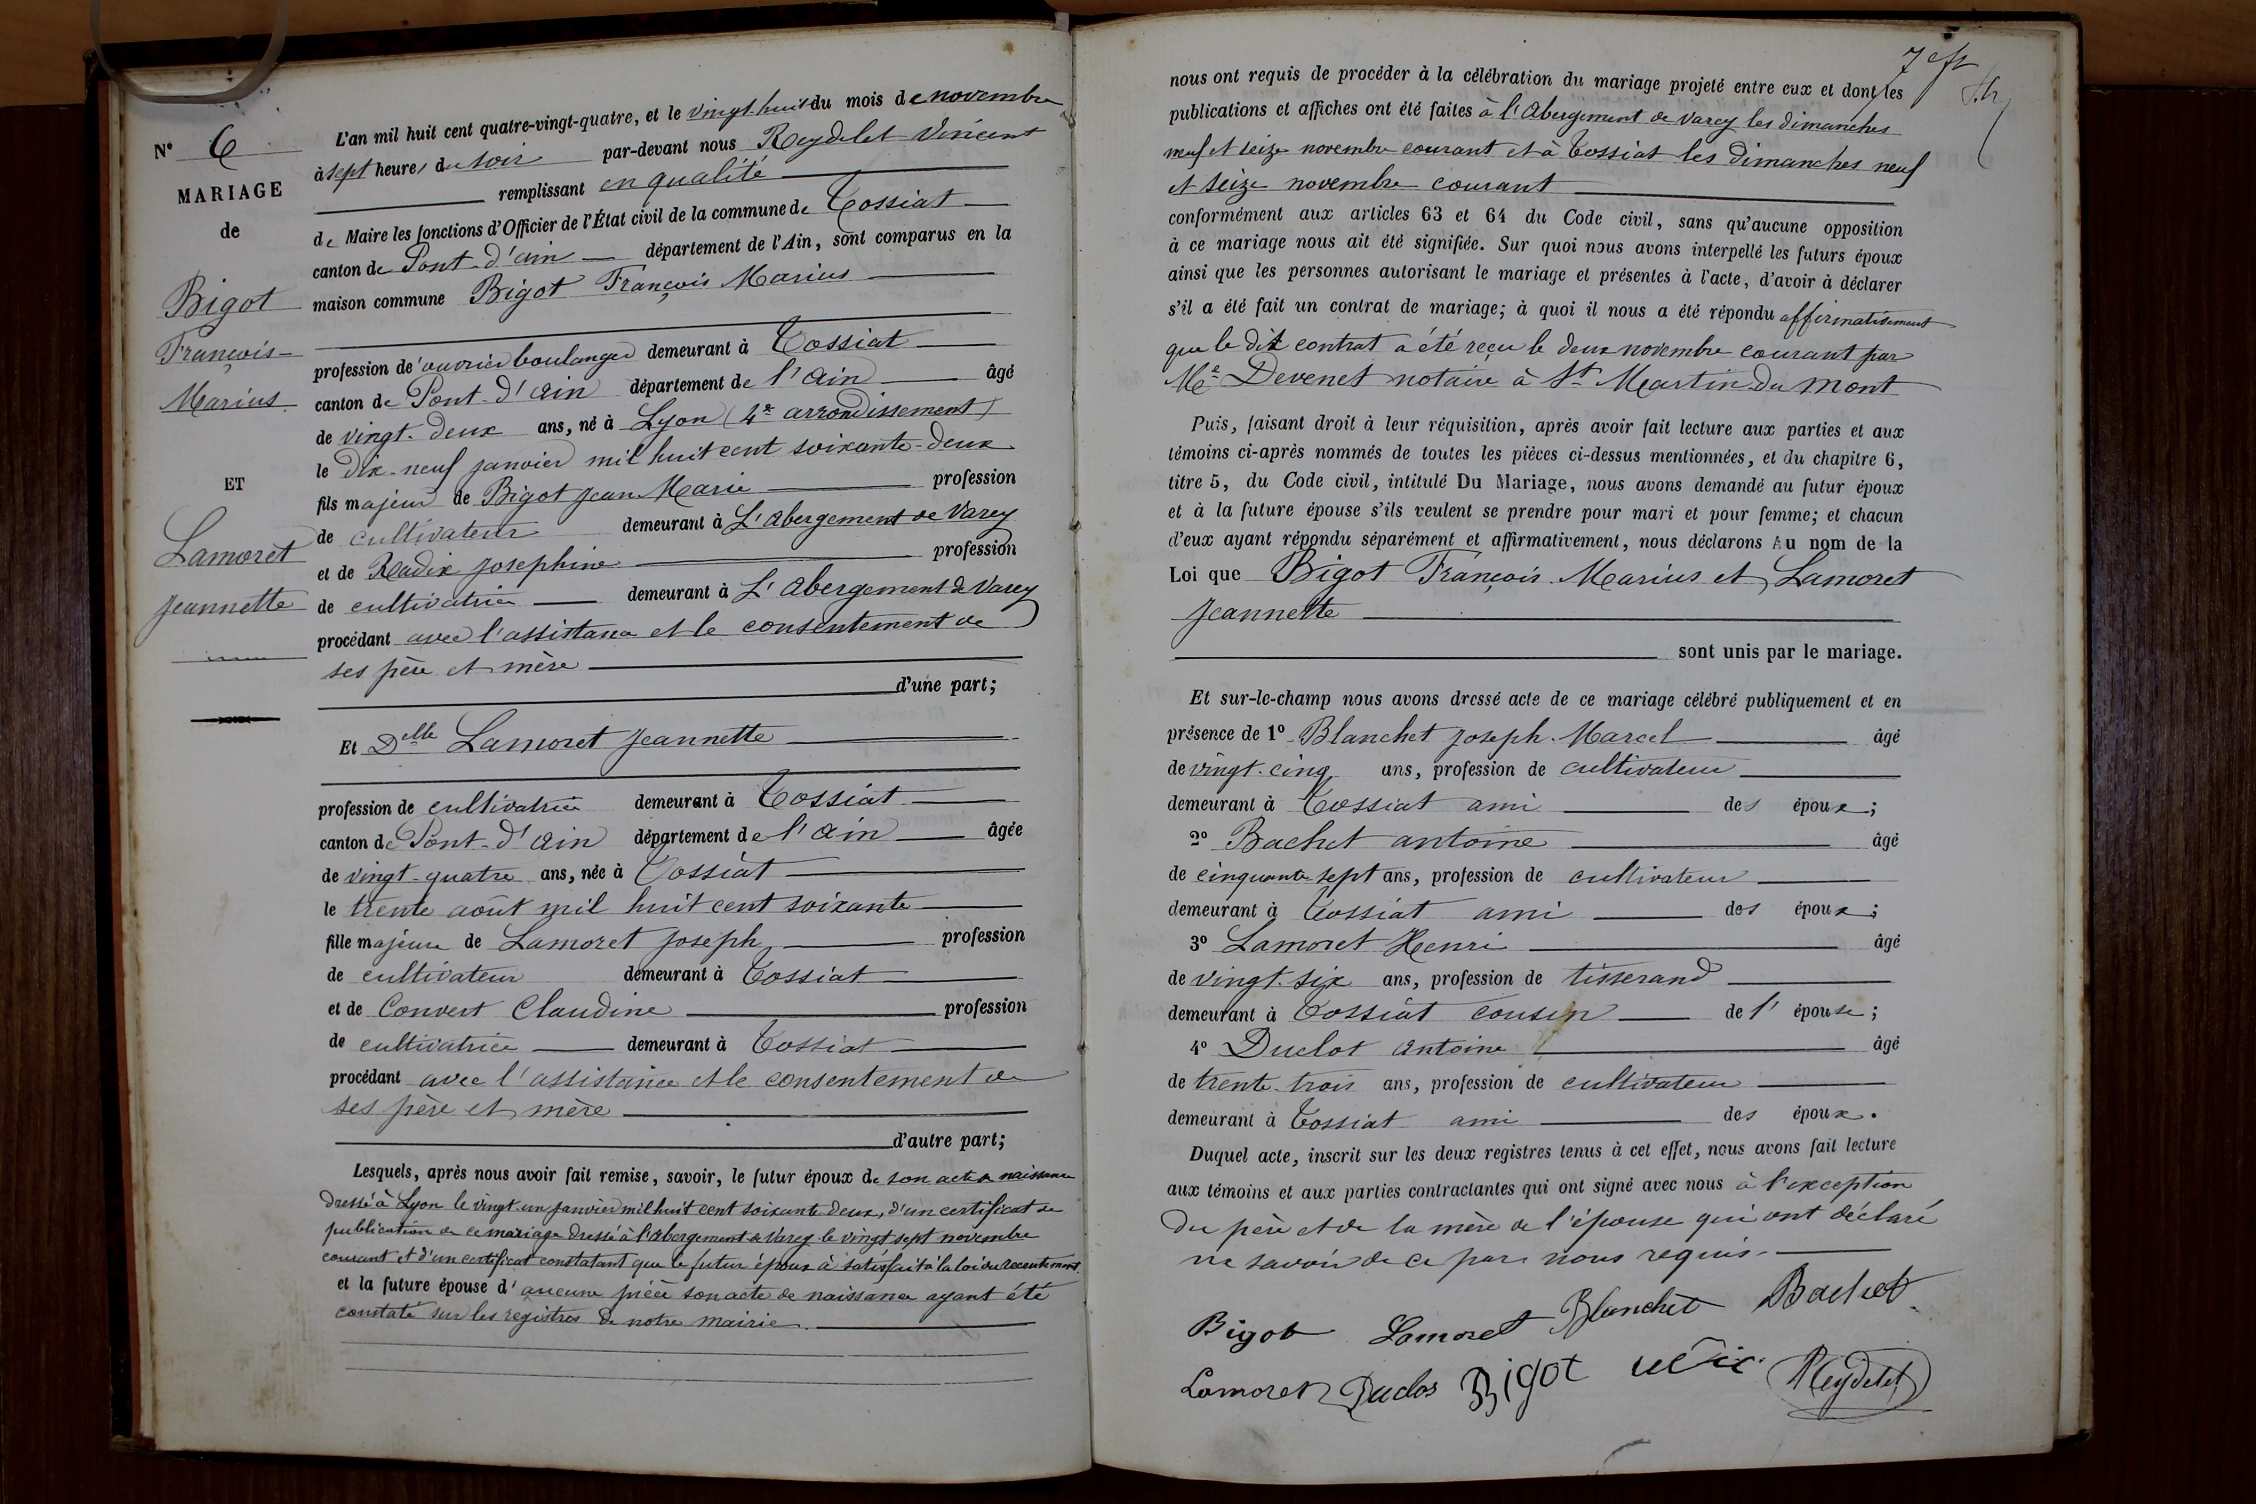 N° 6
MARIAGE
de
Bigot
François
Marius
ET
Lamoret
Jeannette
L'an mil huit cent quatre-vingt-quatre, et le vingt-huit du mois de novembre
à sept heures du soir par-devant nous Reydelet Vincent
remplissant en qualité
de Maire les fonctions d'Officier de l'État civil de la commune de Tossiat
canton de Pont-d'ain département de l'Ain, sont comparus en la
maison commune Bigot François Marius
profession de ouvrier boulanger demeurant à Tossiat
canton de Pont-d'ain département de l'ain âgé
de vingt-deux ans, né à Lyon (4e arrondissement)
le dix-neuf janvier mil huit cent soixante-deux
fils majeur de Bigot Jean Marie profession
de cultivateur demeurant à L'abergement de Varey
et de Radix Josephine profession
de cultivatrice demeurant à L'abergement de Varey
procédant avec l'assistance et le consentement de
ses père et mère
d'une part;
Et Delle Lamoret Jeannette
profession de cultivatrice demeurant à Tossiat
canton de Pont-d'ain département de l'ain âgée
de vingt-quatre ans, née à Tossiat
le trente août mil huit cent soixante
fille majeure de Lamoret Joseph profession
de cultivateur demeurant à Tossiat
et de Convert Claudine profession
de cultivatrice demeurant à Tossiat
procédant avec l'assistance et le consentement de
ses père et mère
d'autre part;
Lesquels, après nous avoir fait remise, savoir, le futur époux de son acte de naissance
dressé à Lyon le vingt-un janvier mil huit cent soixante deux, d'un certificat de
publication de ce mariage dressé à l'abergement de Varey le vingt sept novembre
courant et d'un certificat constatant que le futur époux à satisfait à la loi du recrutement.
et la future épouse d'aucune pièce son acte de naissance ayant été
constaté sur les registres de notre mairie.
nous ont requis de procéder à la célébration du mariage projeté entre eux et dont les
publications et affiches ont été faites à l'abergement de Varey les dimanches
neuf et seize novembre courant et à Tossiat les dimanches neuf
et seize novembre courant
conformément aux articles 63 et 64 du Code civil, sans qu'aucune opposition
à ce mariage nous ait été signifiée. Sur quoi nous avons interpellé les futurs époux
ainsi que les personnes autorisant le mariage et présentes à l'acte, d'avoir à déclarer
s'il a été fait un contrat de mariage; à quoi il nous a été répondu affirmativement
que le dit contrat a été reçu le deux novembre courant par
Me Devenet notaire à St Martin du Mont
Puis, faisant droit à leur réquisition, après avoir fait lecture aux parties et aux
témoins ci-après nommés de toutes les pièces ci-dessus mentionnées, et du chapitre 6,
titre 5, du Code civil, intitulé Du Mariage, nous avons demandé au futur époux
et à la future épouse s'ils veulent se prendre pour mari et pour femme; et chacun
d'eux ayant répondu séparément et affirmativement, nous déclarons Au nom de la
Loi que Bigot François Marius et Lamoret
Jeannette
sont unis par le mariage.
Et sur-le-champ nous avons dressé acte de ce mariage célébré publiquement et en
présence de 1° Blanchet Joseph-Marcel âgé
de vingt-cinq ans, profession de cultivateur
demeurant à Tossiat ami des époux;
2° Bachet antoine âgé
de cinquante sept ans, profession de cultivateur
demeurant à Tossiat ami des époux;
3° Lamoret Henri âgé
de vingt-six ans, profession de tisserand
demeurant à Tossiat cousin de l'épouse;
4° Duclot antoine âgé
de trente-trois ans, profession de cultivateur
demeurant à Tossiat ami des époux.
Duquel acte, inscrit sur les deux registres tenus à cet effet, nous avons fait lecture
aux témoins et aux parties contractantes qui ont signé avec nous à l'exception
du père et de la mère de l'épouse qui ont déclaré
ne savoir de ce par nous requis.
Bigot Lamoret Blanchet Bachet
Lamoret Duclos Bigot Reydelet